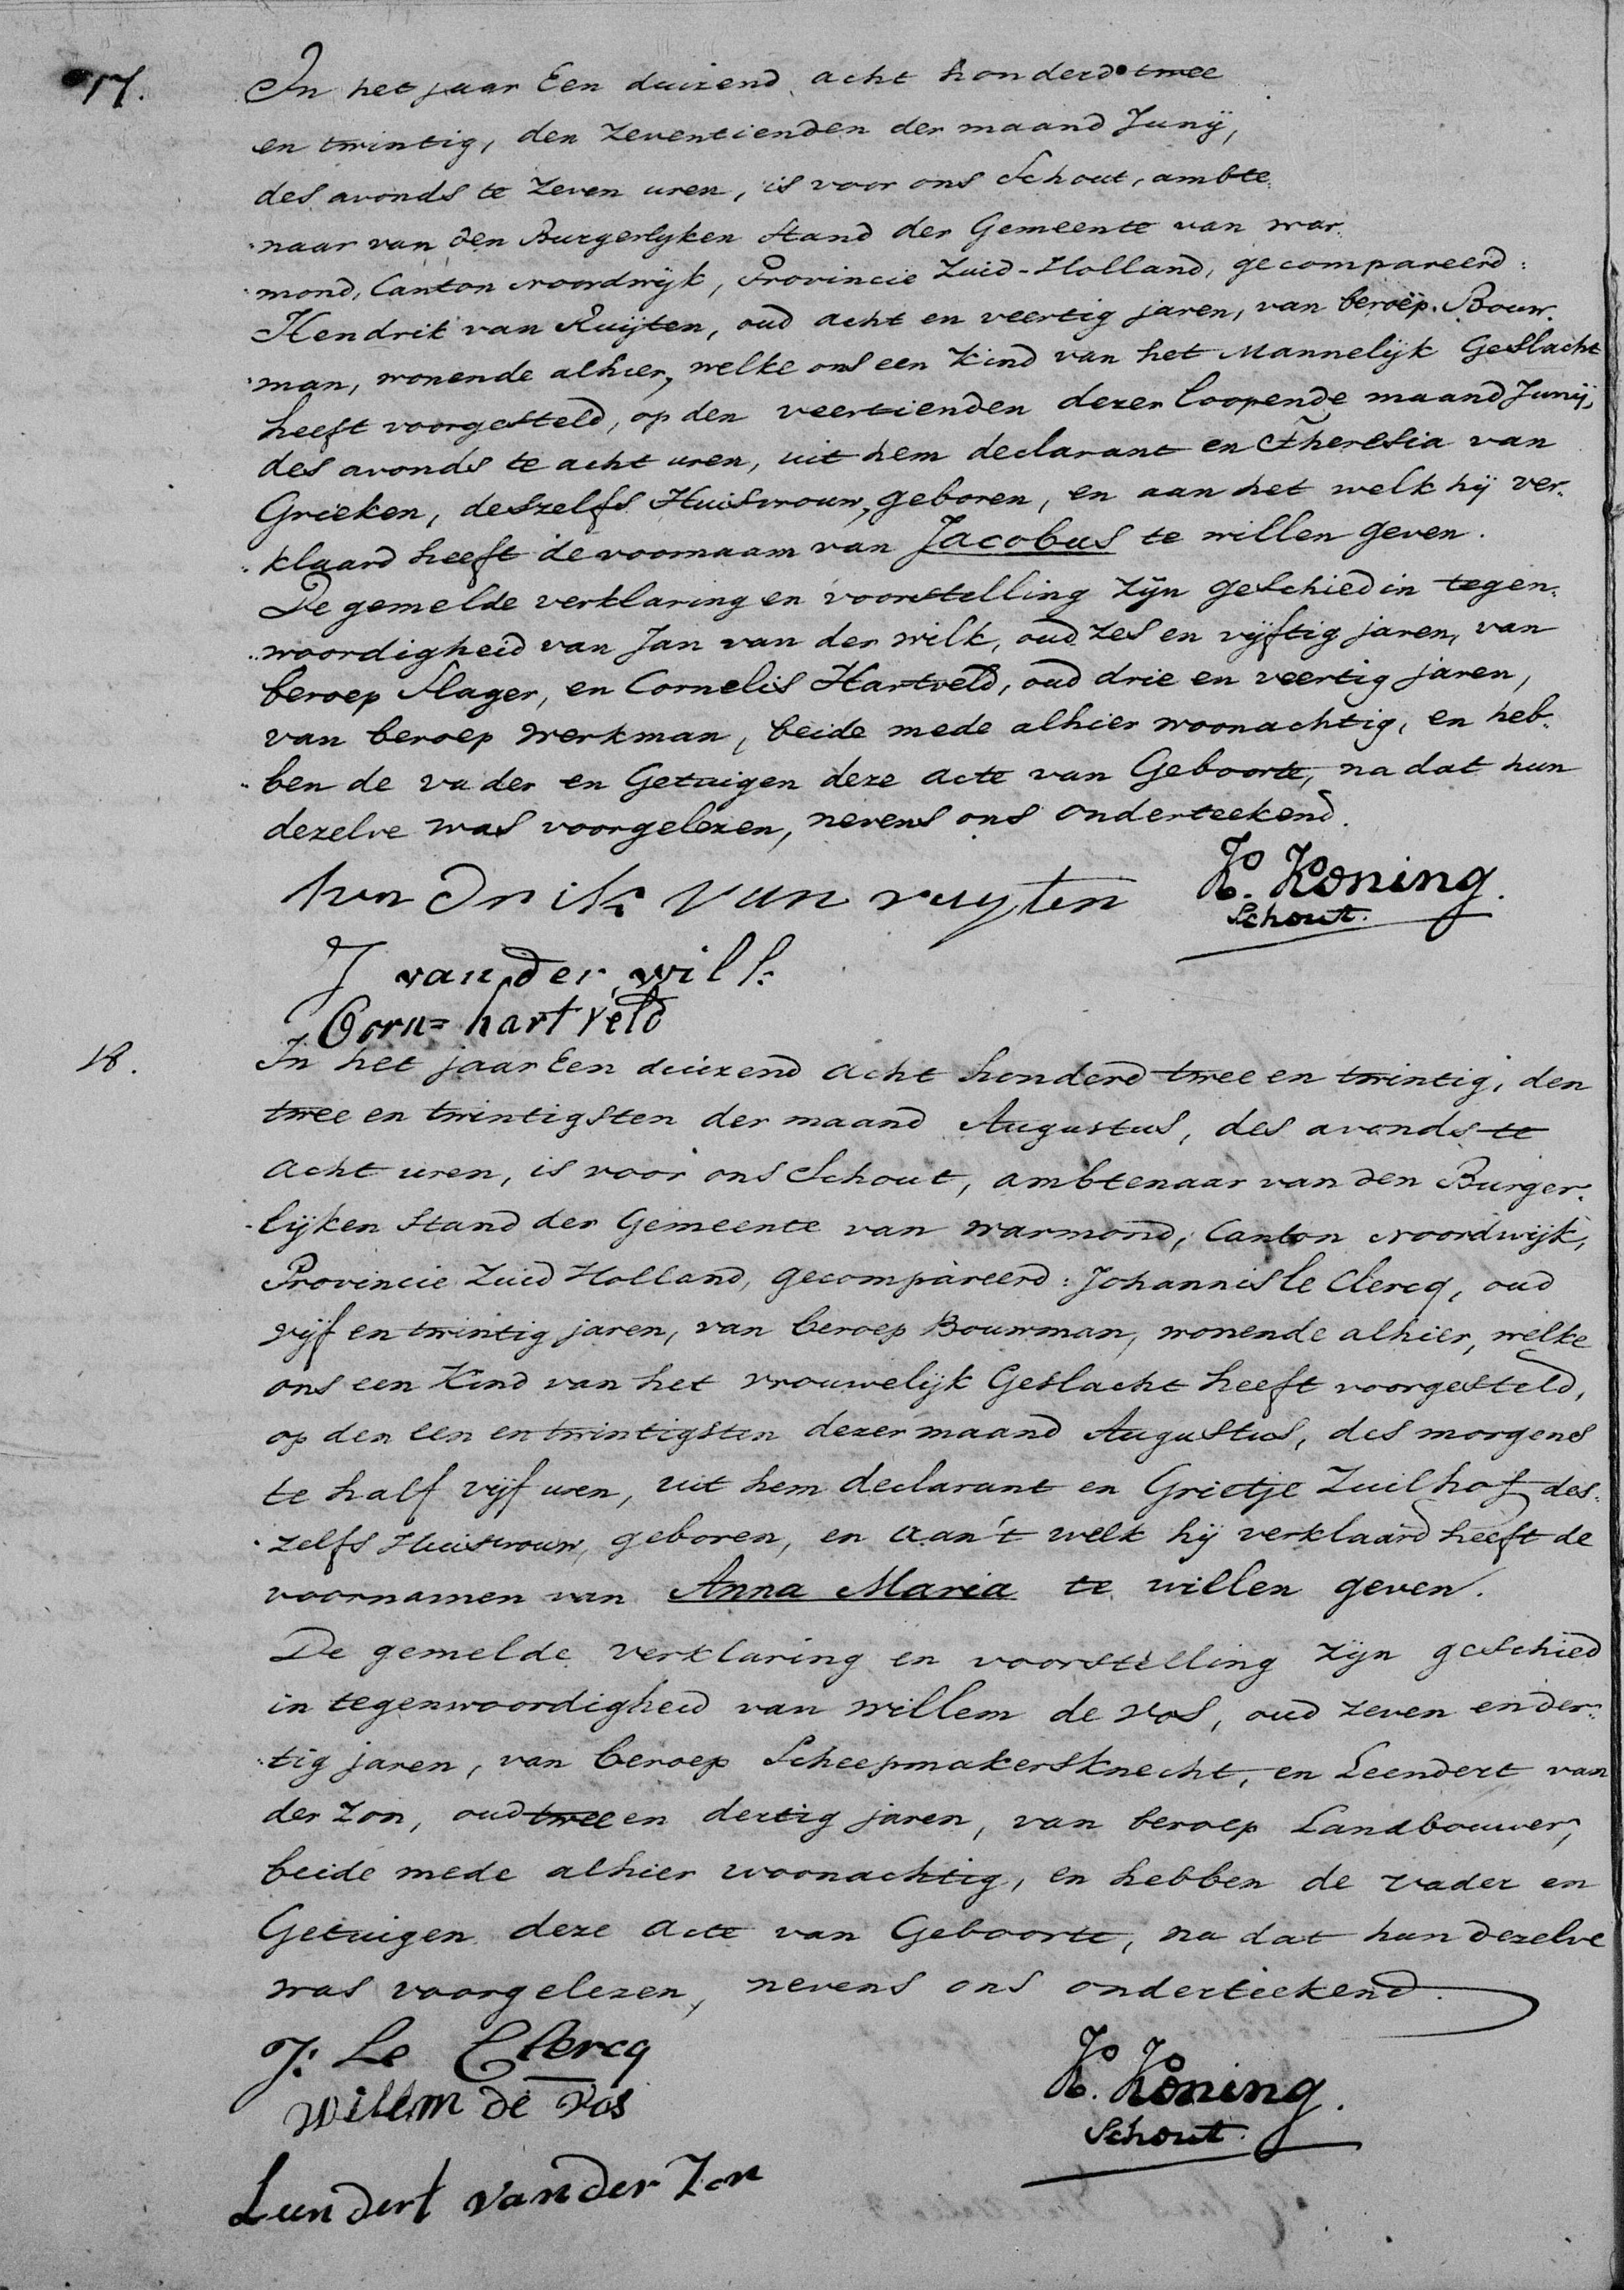 17.
In het jaar Een duizend acht honderd twee
en twintig, den zeventienden der maand Junij,
des avonds te zeven uren, is voor ons Schout, ambte-
naar van den Burgerlyken Stand der Gemeente van War-
mond, Canton Noordwijk, Provincie Zuid-Holland, gecompareerd:
Hendrik van Ruijten, oud acht en veertig jaren, van beroep Bouw-
man, wonende alhier, welke ons een Kind van het Mannelijk Geslacht
heeft voorgesteld, op den veertienden dezer loopende maand Junij,
des avonds te acht uren, uit hem declarant en Theresia van
Grieken, deszelfs Huisvrouw, geboren, en aan het welk hij ver-
klaard heeft de voornaam van Jacobus te willen geven.
De gemelde verklaring en voorstelling zijn geschied in tegen-
woordigheid van Jan van der Wilk, oud zes en vijftig jaren, van
beroep Slager, en Cornelis Hartveld, oud drie en veertig jaren,
van beroep Werkman, beide mede alhier woonachtig, en heb-
ben de vader en Getuigen deze acte van Geboorte, na dat hun
dezelve was voorgelezen, nevens ons onderteekend.
hendrik van ruyten K. Koning.
Schout.
J van der wilk
Corn= hartveld
18.
In het jaar Een duizend acht honderd twee en twintig, den
twee en twintigsten der maand Augustus, des avonds te
acht uren, is voor ons Schout, ambtenaar van den Burger-
lijken Stand der Gemeente van Warmond, Canton Noordwijk,
Provincie Zuid Holland, gecompareerd: Johannis le Clercq, oud
vijf en twintig jaren, van beroep Bouwman, wonende alhier, welke
ons een Kind van het vrouwelijk Geslacht heeft voorgesteld,
op den een en twintigsten dezer maand Augustus, des morgens
te half vijf uren, uit hem declarant en Grietje Zuilhof des-
zelfs Huisvrouw, geboren, en aan't welk hij verklaard heeft de
voornamen van Anna Maria te willen geven.
De gemelde verklaring en voorstelling zijn geschied
in tegenwoordigheid van Willem de Vos, oud zeven en der-
tig jaren, van beroep Scheepmakersknecht, en Leendert van
der Zon, oud twee en dertig jaren, van beroep Landbouwer,
beide mede alhier woonachtig, en hebben de vader en
Getuigen deze acte van Geboorte, na dat hun dezelve
was voorgelezen, nevens ons onderteekend.
J: Le Clercq
K. Koning.
Willem de Vos
Schout.
Leendert van der Zon